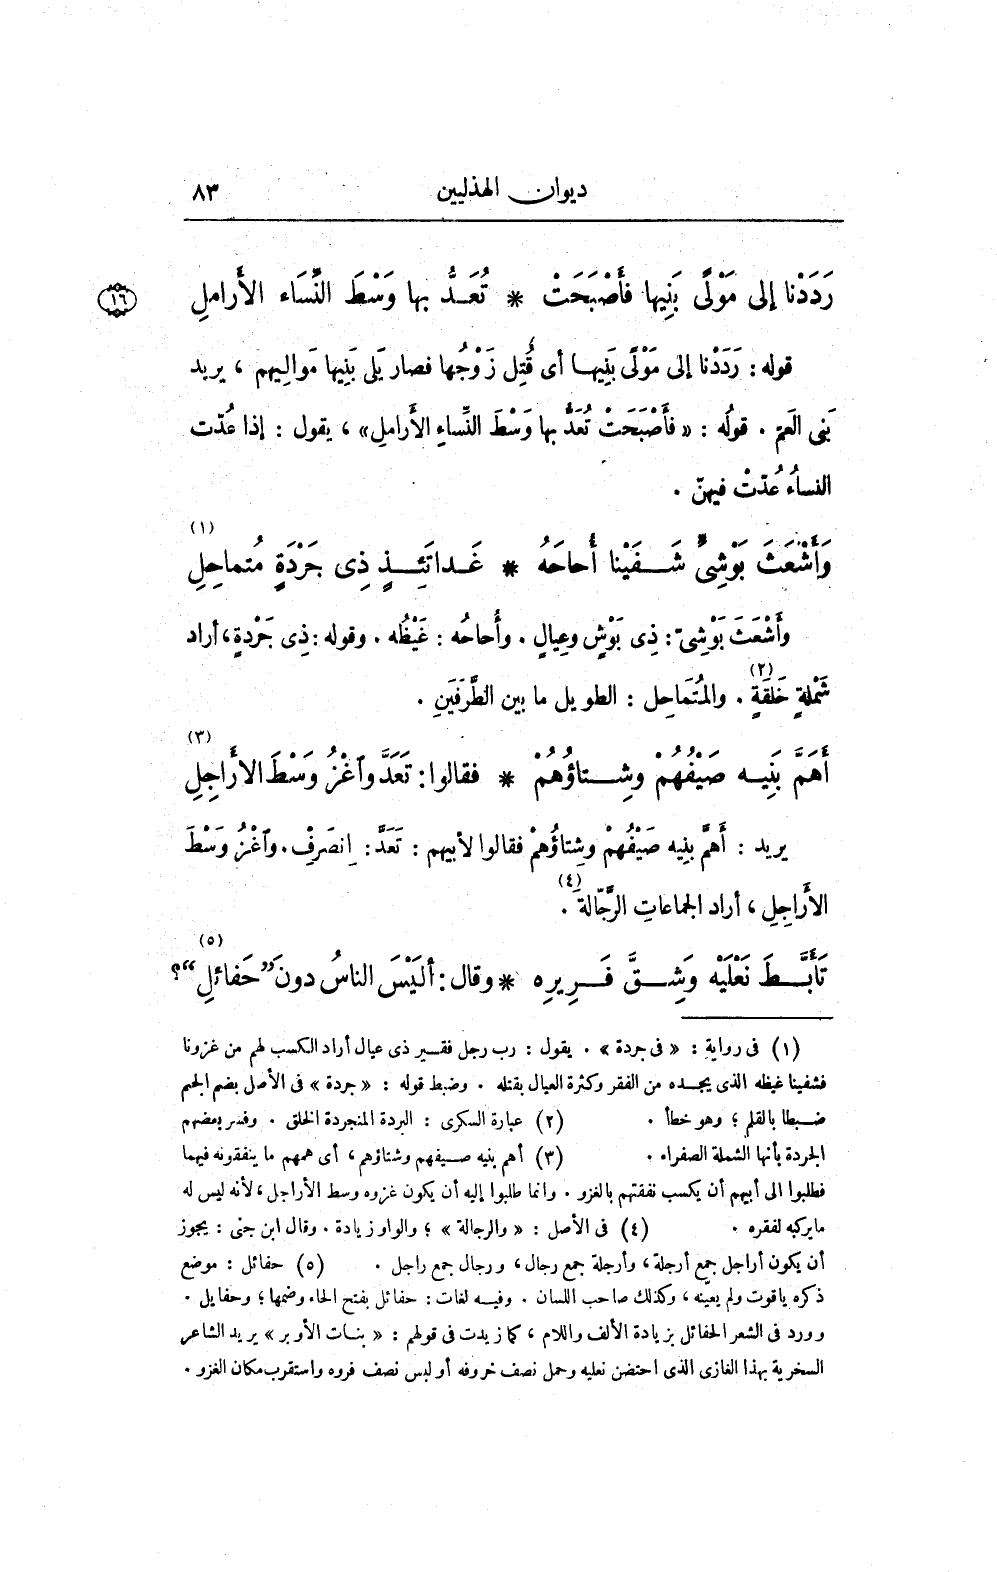 ديوان الهذليين ٨٣
رَدَدْنا إلى مَوْلَى بَنِيها فأَصْبَحَتْ * تُعَدُّ بها وَسْطَ النِّسَاء الأَراملِ
١٦
قوله : رَدَدْنا إلى مَوْلَى بَنِيها أى قُتِل زَوْجُها فصار يَلِى بَنِيها مَوالِيهم ، يريد
بَنى العَم . قولُه : « فأَصْبَحَتْ تُعَدُّ بها وَسْطَ النِّساءِ الأَراملِ » ، يقول : إذا عُدّت
النساءُ عُدّتْ فيهنّ .
وَأَشْعَثَ بَوْشِىٍّ شَفَيْنا أُحاحَهُ * غَداتَئِذٍ ذِى جَرْدَةٍ مُتماحِلِ (١)
وأَشْعَثَ بَوْشِىّ : ذِى بَوْشٍ وعِيالٍ . وأُحاحُه : غَيْظُه . وقوله : ذِى جَرْدةٍ ، أراد
شَمْلةٍ خَلَقَةٍ (٢) . والمُتَماحِل : الطويل ما بين الطَّرَفَينِ .
أَهَمَّ بَنِيه صَيْفُهُمْ وشِتاؤُهُمْ * فقالوا : تَعَدَّ وٱغْزُ وَسْطَ الأَراجِلِ (٣)
يريد : أَهَمَّ بنِيه صَيْفُهُمْ وشِتاؤُهمْ فقالوا لأبيهم : تَعَدَّ : اِنصَرِفْ . وٱغْزُ وَسْطَ
الأَراجِلِ ، أراد الجماعاتِ الرَّجّالة (٤) .
تَأَبَّطَ نَعْلَيْه وَشِقَّ فَرِيرِه * وقال : أليْسَ الناسُ دونَ “ حَفائلِ “ ؟ (٥)
(١) فى رواية : « فى جردة » . يقول : رب رجل فقير ذى عيال أراد الكسب لهم من غزونا
فشفينا غيظه الذى يجده من الفقر وكثرة العيال بقتله . وضبط قوله : « جردة » فى الأصل بضم الجيم
ضبطا بالقلم ؛ وهو خطأ . (٢) عبارة السكرى : البردة المنجردة الخلق . وفسر بعضهم
الجردة بأنها الشملة الصفراء . (٣) أهم بنيه صيفهم وشتاؤهم ، أى همهم ما ينفقونه فيهما
فطلبوا الى أبيهم أن يكسب نفقتهم بالغزو . وانما طلبوا إليه أن يكون غزوه وسط الأراجل ، لأنه ليس له
ما يركبه لفقره . (٤) فى الأصل : « والرجالة » ؛ والواو زيادة . وقال ابن جنى : يجوز
أن يكون أراجل جمع أرجلة ، وأرجلة جمع رجال ، ورجال جمع راجل . (٥) حفائل : موضع
ذكره ياقوت ولم يعيّنه ، وكذلك صاحب اللسان . وفيه لغات : حفائل بفتح الحاء وضمها ؛ وحفايل .
وورد فى الشعر الحفائل بزيادة الألف واللام ، كما زيدت فى قولهم : « بنات الأوبر » يريد الشاعر
السخرية بهذا الغازى الذى احتضن نعليه وحمل نصف خروفه أو لبس نصف فروه واستقرب مكان الغزو .